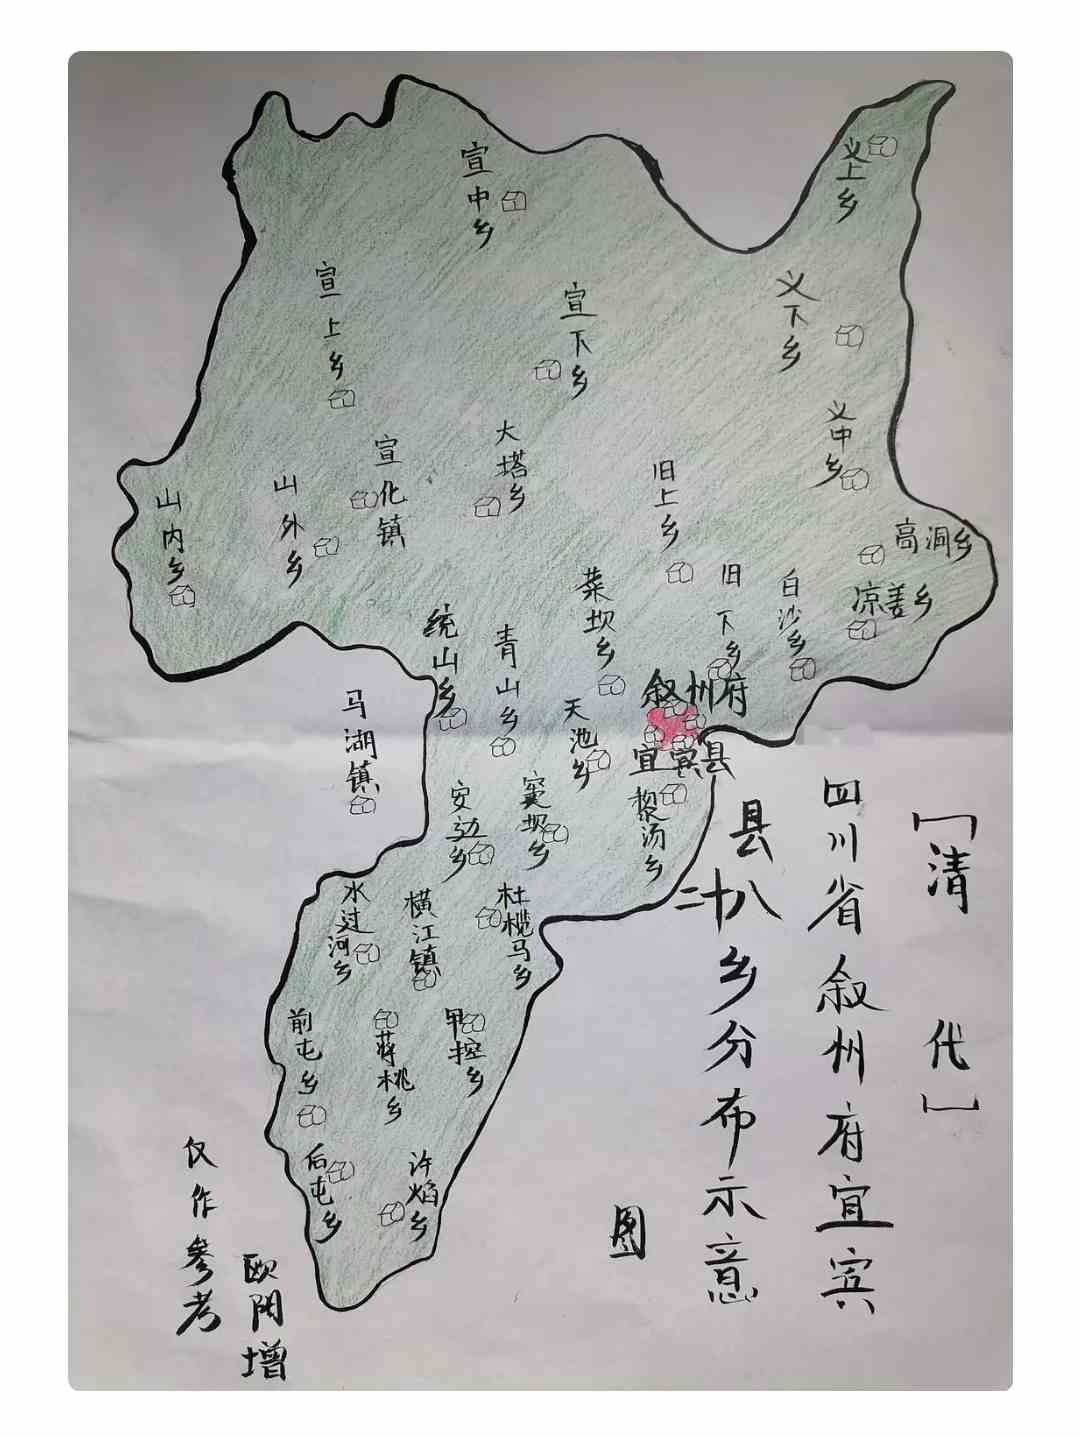 [清代]
四川省叙州府宜宾
县二十八乡分布示意
图
义上乡
宣中乡
宣上乡
宣下乡
义下乡
义中乡
大塔乡
宣化镇
旧上乡
山外乡
山内乡
高洞乡
凉姜乡
白沙乡
旧下乡
菜坝乡
统山乡
青山乡
叙州府
宜宾县
天池乡
马湖镇
安边乡
窦坝乡
黎汤乡
水过河乡
横江镇
杜榄马乡
前屯乡
蒋桃乡
甲控乡
后屯乡
许焰乡
仅作参考
欧阴增